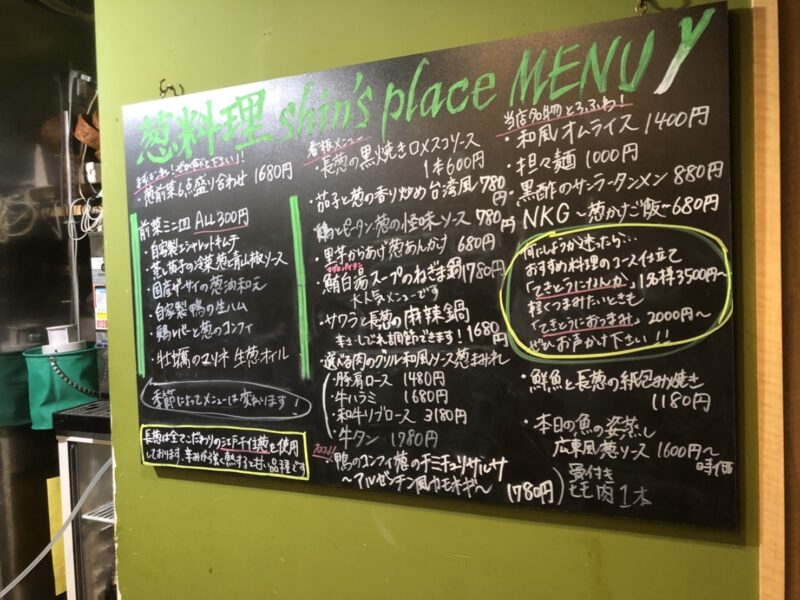 葱料理 shin's place MENU
まずはこれ!ぜひ食べて下さい!!
・葱前菜6点盛り合わせ 1680円
前菜ミニ皿 ALL 300円
・自家製エシャレットキムチ
・蒸し茄子の冷菜葱青山椒ソース
・国産ザーサイの葱油和え
・自家製鴨の生ハム
・鶏レバーと葱のコンフィ
・牡蠣のマリネ 生葱オイル
季節によってメニューは変わります!
長葱は全てこだわりの江戸千住葱を使用
しております。辛みが強く熱すると甘い品種です
看板メニュー
・長葱の黒焼きロメスコソース
1本600円
・茄子と葱の香り炒め台湾風780円
・鶏とピータン葱の怪味ソース 780円
・里芋からあげ葱あんかけ 680円
マグロパイタン
・鮪白湯スープのねぎま鍋1780円
大人気メニューです
・サワラと長葱の麻辣鍋
辛さしびれ調節できます!1680円
・選べる肉のグリル和風ソース葱まみれ
・豚肩ロース 1480円
・牛ハラミ 1680円
・和牛リブロース 3180円
・牛タン 1780円
・鴨のコンフィ葱のチミチュリサルサ
〜アルゼンチン風カモネギ〜 1780円
骨付き
もも肉1本
当店名物とろふわ!
・和風オムライス 1400円
・担々麺 1000円
・黒酢のサンラータンメン 880円
NKG〜葱かけご飯〜680円
何にしようか迷ったら…
おすすめ料理のコース仕立て
「てきとうになんか」1名様3500円〜
軽くつまみたいときも
「てきとうにおつまみ」2000円〜
ぜひお声かけ下さい!!
・鮮魚と長葱の紙包み焼き
1180円
・本日の魚の姿蒸し
広東風葱ソース 1600円〜
時価